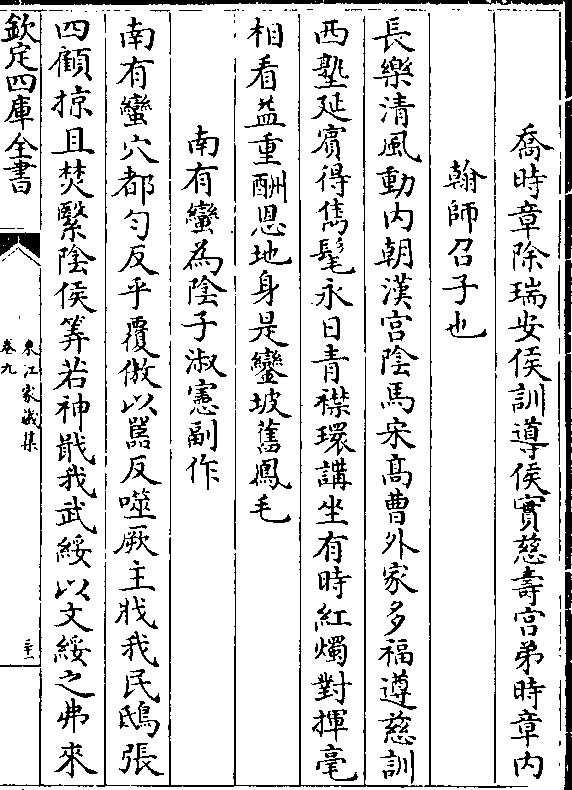 喬時章除瑞安侯訓導侯實慈壽宫弟時章内
翰師召子也
長樂清風動内朝漢宫陰馬宋髙曹外家多福遵慈訓
西塾延賔得雋髦永日青襟環講坐有時紅燭對揮毫
相看益重酬恩地身是鑾坡舊鳳毛
南有蠻為陰子淑憲副作
南有蠻穴都匀反乎覆儆以嚚反噬厥主戕我民鴟張
四顧掠且焚繫陰侯筭若神戢我武綏以文綏之弗來
欽定四庫全書
東江家藏集
卷九